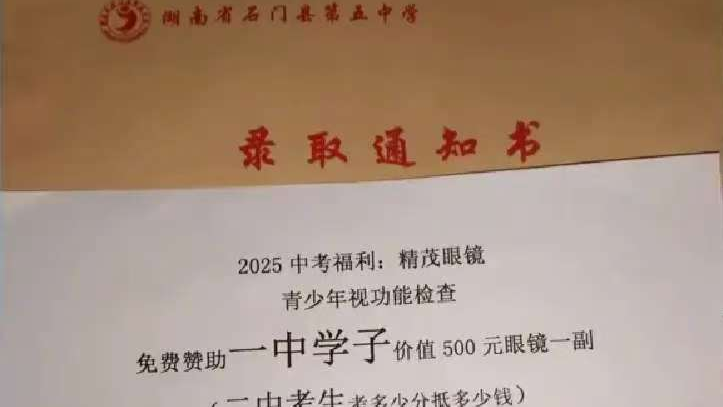 湖南省石门县第五中学
录取通知书
2025 中考福利：精茂眼镜
青少年视功能检查
免费赞助一中学子价值 500 元眼镜一副
（二中考生考多少分抵多少钱）